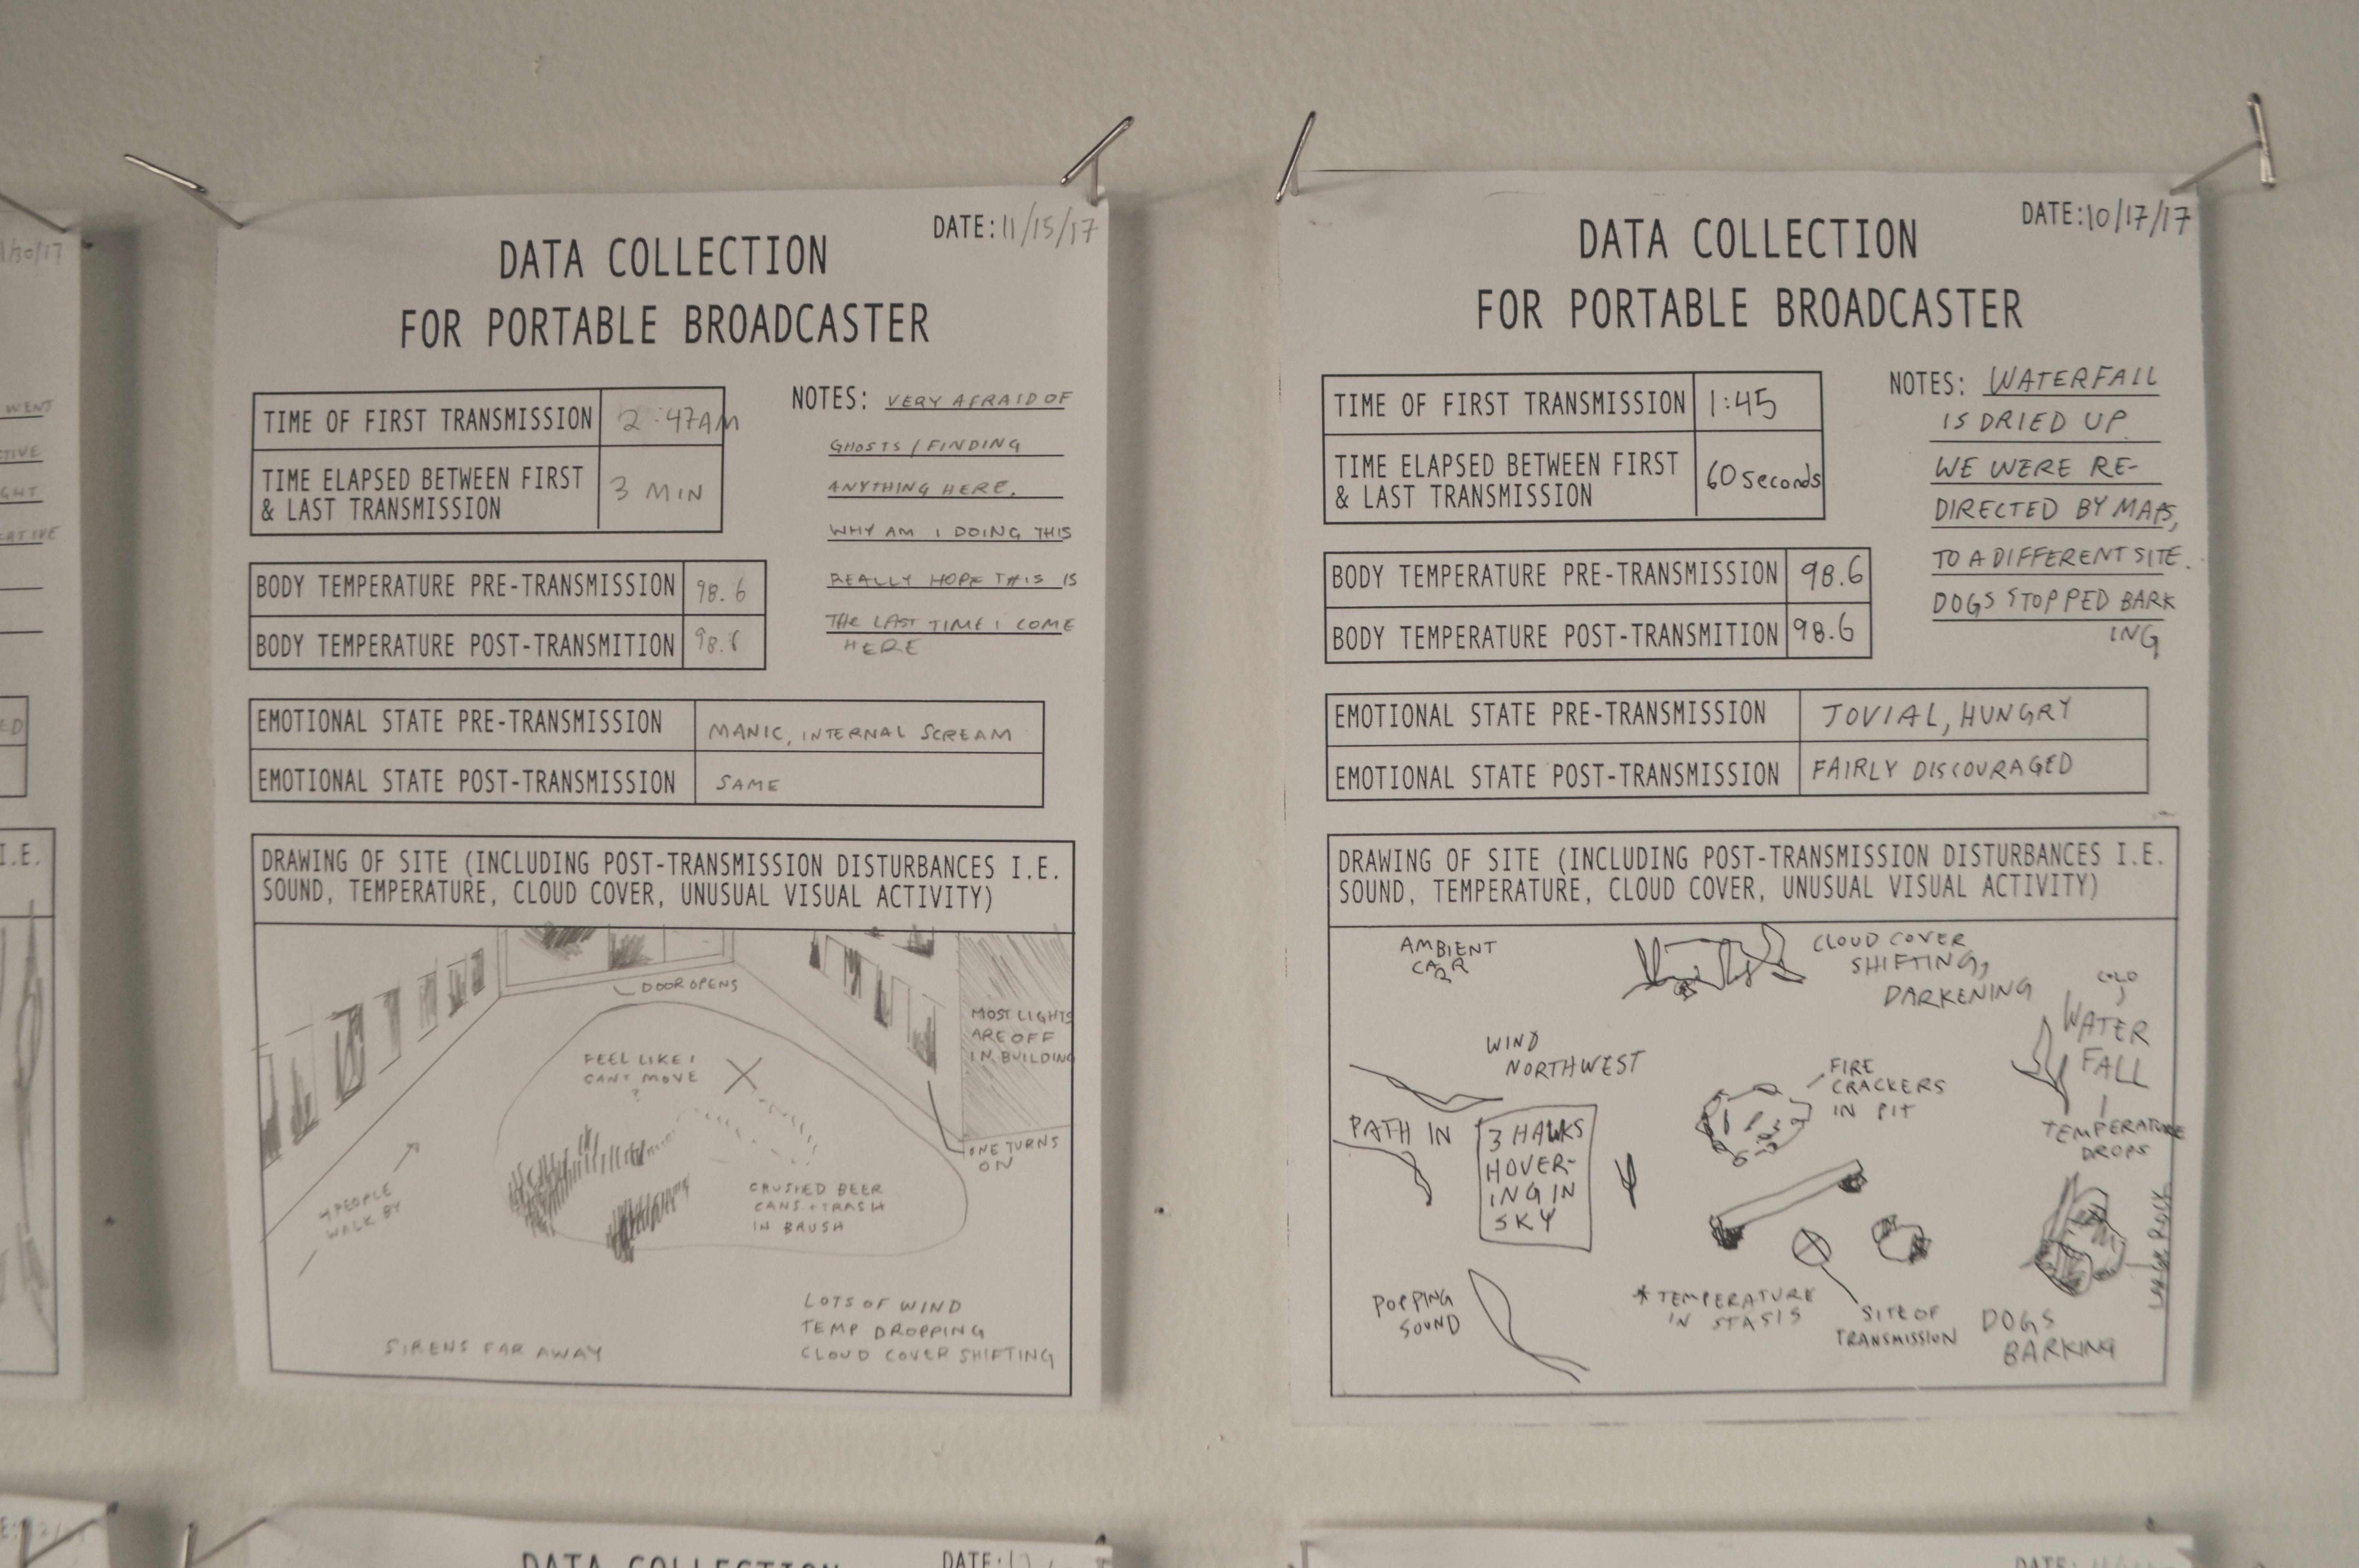 1/30/17
WENT
ED
I.E.
DATE: 11/15/17
DATA COLLECTION
FOR PORTABLE BROADCASTER
TIME OF FIRST TRANSMISSION 2:47AM
TIME ELAPSED BETWEEN FIRST
& LAST TRANSMISSION
3 MIN
NOTES: VERY AFRAID OF
GHOSTS / FINDING
ANYTHING HERE.
WHY AM I DOING THIS
REALLY HOPE THIS IS
THE LAST TIME I COME
HERE
BODY TEMPERATURE PRE-TRANSMISSION 98.6
BODY TEMPERATURE POST-TRANSMITION 98.6
EMOTIONAL STATE PRE-TRANSMISSION MANIC, INTERNAL SCREAM
EMOTIONAL STATE POST-TRANSMISSION SAME
DRAWING OF SITE (INCLUDING POST-TRANSMISSION DISTURBANCES I.E.
SOUND, TEMPERATURE, CLOUD COVER, UNUSUAL VISUAL ACTIVITY)
DOOR OPENS
MOST LIGHTS
ARE OFF
IN BUILDING
FEEL LIKE I
CANT MOVE
?
ONE TURNS
ON
PEOPLE
WALK BY
CRUSHED BEER
CANS + TRASH
IN BRUSH
SIRENS FAR AWAY
LOTS OF WIND
TEMP DROPPING
CLOUD COVER SHIFTING
DATE: 10/17/17
DATA COLLECTION
FOR PORTABLE BROADCASTER
TIME OF FIRST TRANSMISSION 1:45
TIME ELAPSED BETWEEN FIRST
& LAST TRANSMISSION
60 seconds
NOTES: WATERFALL
IS DRIED UP.
WE WERE RE-
DIRECTED BY MAPS,
TO A DIFFERENT SITE.
DOGS STOPPED BARK
ING
BODY TEMPERATURE PRE-TRANSMISSION 98.6
BODY TEMPERATURE POST-TRANSMITION 98.6
EMOTIONAL STATE PRE-TRANSMISSION JOVIAL, HUNGRY
EMOTIONAL STATE POST-TRANSMISSION FAIRLY DISCOURAGED
DRAWING OF SITE (INCLUDING POST-TRANSMISSION DISTURBANCES I.E.
SOUND, TEMPERATURE, CLOUD COVER, UNUSUAL VISUAL ACTIVITY)
AMBIENT
CLOUD COVER
SHIFTING,
DARKENING
OLD
WATER
FALL
TEMPERATURE
DROPS
WIND
NORTHWEST
FIRE
CRACKERS
IN PIT
PATH IN
3 HAWKS
HOVER-
ING IN
SKY
POPPING
SOUND
*TEMPERATURE
IN STASIS
SITE OF
TRANSMISSION
DOGS
BARKING
DATA COLLECTION
DATE:
DATE: